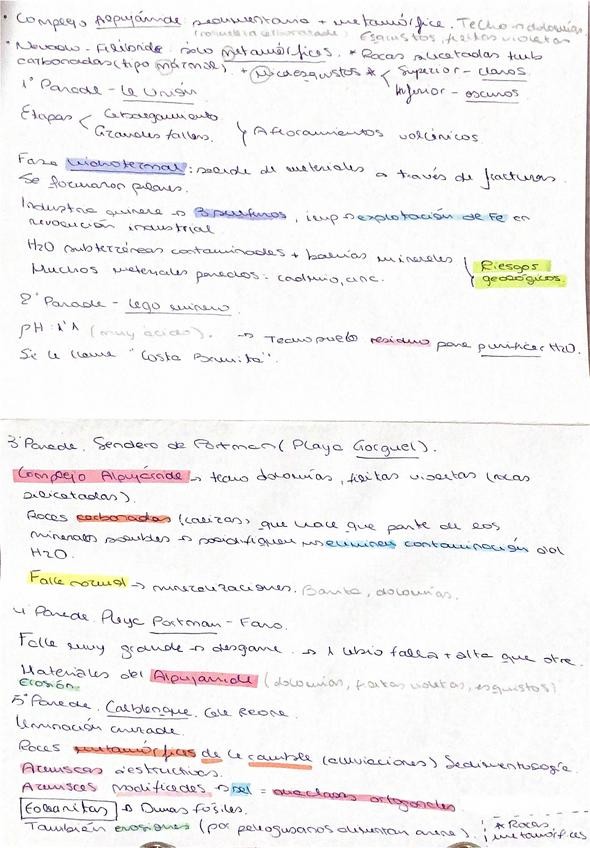 • Complejo Alpujárride: sedimentario + metamórfico. Techo → dolomías.
Esquistos, filitas violetas
• Nevado-Filábride: solo metamórficas. * Rocas silicatadas tmb
carbonadas (tipo mármol) + Micaesquistos * Superior - claros
Inferior - oscuros
1ª Parada - La Unión
Etapas Cabalgamiento
Grandes fallas. Afloramientos volcánicos
Fase hidrotermal: salida de materiales a través de fracturas.
Se formaron pilares.
Industria minera → 3 sulfuros, imp → explotación de Fe en
revolución industrial.
H2O subterráneas contaminadas + balsas minerales
Riesgos
Muchos metales pesados: cadmio, cinc.
geológicos.
2ª Parada - Lago minero
pH: 1'1 (muy ácido). → Tecnosuelo residuo para purificar H2O.
Se le llama "Costa Bonita".
3ª Parada. Sendero de Portman (Playa Gorguel).
Complejo Alpujárride → techo dolomías, filitas violetas (rocas
silicatadas).
Rocas carbonadas (calizas) que hace que parte de los
minerales solubles → solidifiquen → eliminen contaminación del
H2O.
Falla normal → mineralizaciones. Barita, dolomías.
4ª Parada. Playa Portman - Faro.
Falla muy grande → desgarre. → 1 labio falla + alta que otra.
Materiales del Alpujárride (dolomías, filitas violetas, esquistos)
Erosión.
5ª Parada. Calblanque. Cala Reona.
Laminación cruzada.
Rocas metamórficas de la rambla (aluviaciones) Sedimentología.
Areniscas destructivas.
Areniscas modificadas → sal = diaclasas ortogonales.
Eolianitas → Dunas fósiles.
También erosiones (por arena).
* Rocas
metamórficas